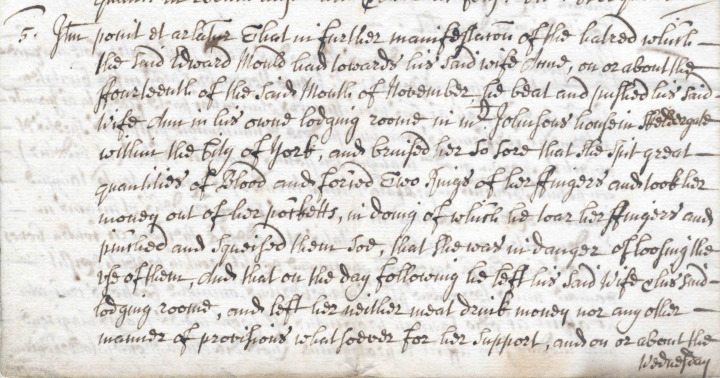 5. Itm ponit et arlatur That in further manifestacon of the hatred which
the said Edward Mould had towards his said wife Anne, on or about the
ffourteenth of the said Month of November he beat and pushed his said
wife Ann in his owne lodging roome in mr Johnsons house in Skeldergate
within the City of York, and bruised her so sore that she spit great
quantities of Blood and forced Two Rings of her ffingers and took her
money out of her pocketts, in doing of which he toar her ffingers and
pinched and squeised them soe, that she was in danger of loosing the
vse of them, And that on the day following he left his said wife & his said
lodging roome, and left her neither meat drink money nor any other
manner of provisions whatsoever for her support, and on or about the
Wednesday